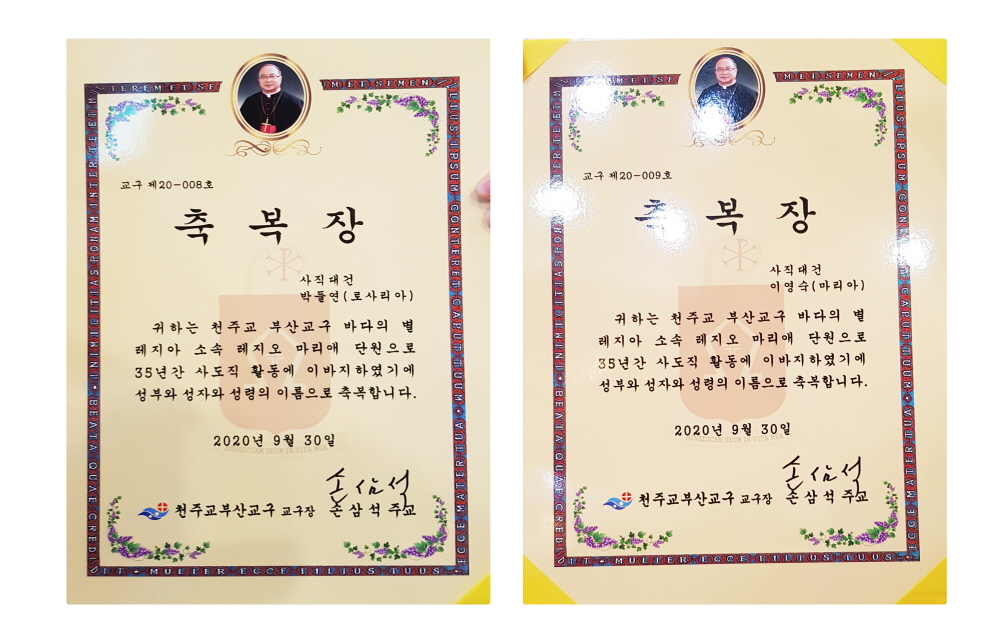 교구 제20-008호
축 복 장
사직대건
박둘연(로사리아)
귀하는 천주교 부산교구 바다의 별
레지아 소속 레지오 마리애 단원으로
35년간 사도직 활동에 이바지하였기에
성부와 성자와 성령의 이름으로 축복합니다.
2020년 9월 30일
BENEDICAM DEUM IN VITA MEA
손삼석
천주교부산교구 교구장 손 삼 석 주교
MET SEMEN
ILLIUS IPSUM CONTERET CAPUT TUUM
ECCE MATER TUA
MULIER ECCE FILIUS TUUS
BEATAQUAE CREDIDIT
INIMICITIAS PONAM INTER TE ET MULIEREM ET SE
교구 제20-009호
축 복 장
사직대건
이영숙(마리아)
귀하는 천주교 부산교구 바다의 별
레지아 소속 레지오 마리애 단원으로
35년간 사도직 활동에 이바지하였기에
성부와 성자와 성령의 이름으로 축복합니다.
2020년 9월 30일
BENEDICAM DEUM IN VITA MEA
손삼석
천주교부산교구 교구장 손 삼 석 주교
MET SEMEN
ILLIUS IPSUM CONTERET CAPUT TUUM
ECCE MATER TUA
MULIER ECCE FILIUS TUUS